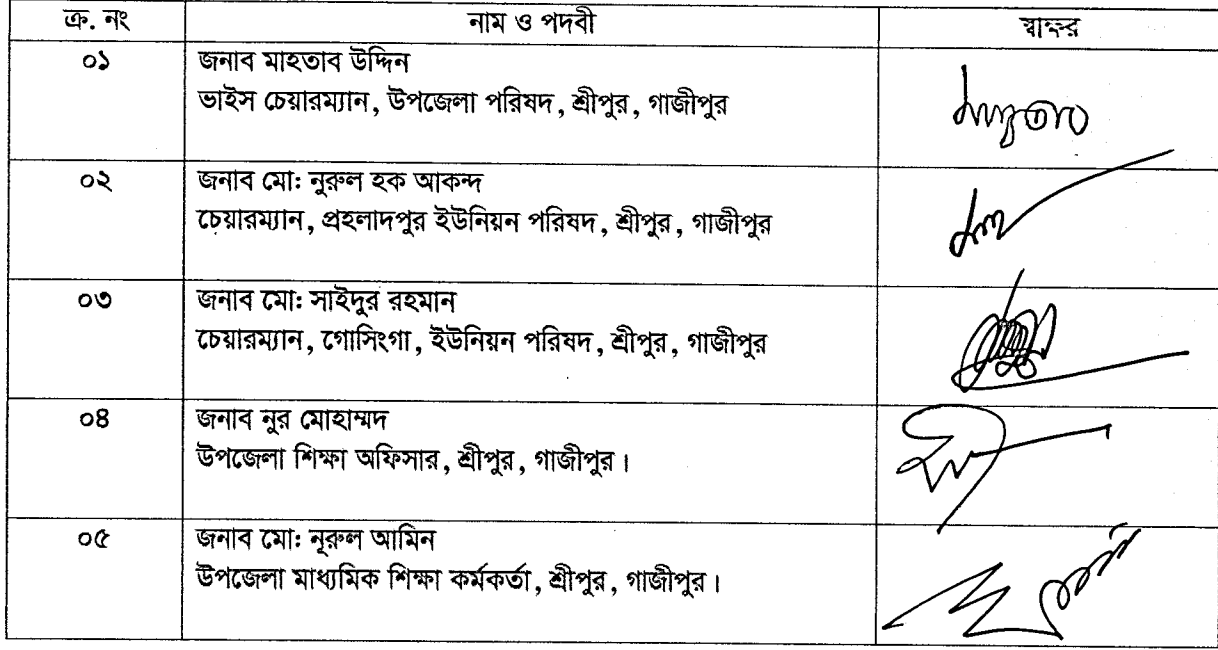 ক্র. নং নাম ও পদবী স্বাক্ষর
০১ জনাব মাহতাব উদ্দিন
ভাইস চেয়ারম্যান, উপজেলা পরিষদ, শ্রীপুর, গাজীপুর
মাহতাব
০২ জনাব মো: নুরুল হক আকন্দ
চেয়ারম্যান, প্রহলাদপুর ইউনিয়ন পরিষদ, শ্রীপুর, গাজীপুর
০৩ জনাব মো: সাইদুর রহমান
চেয়ারম্যান, গোসিংগা, ইউনিয়ন পরিষদ, শ্রীপুর, গাজীপুর
০৪ জনাব নুর মোহাম্মদ
উপজেলা শিক্ষা অফিসার, শ্রীপুর, গাজীপুর।
০৫ জনাব মো: নূরুল আমিন
উপজেলা মাধ্যমিক শিক্ষা কর্মকর্তা, শ্রীপুর, গাজীপুর।